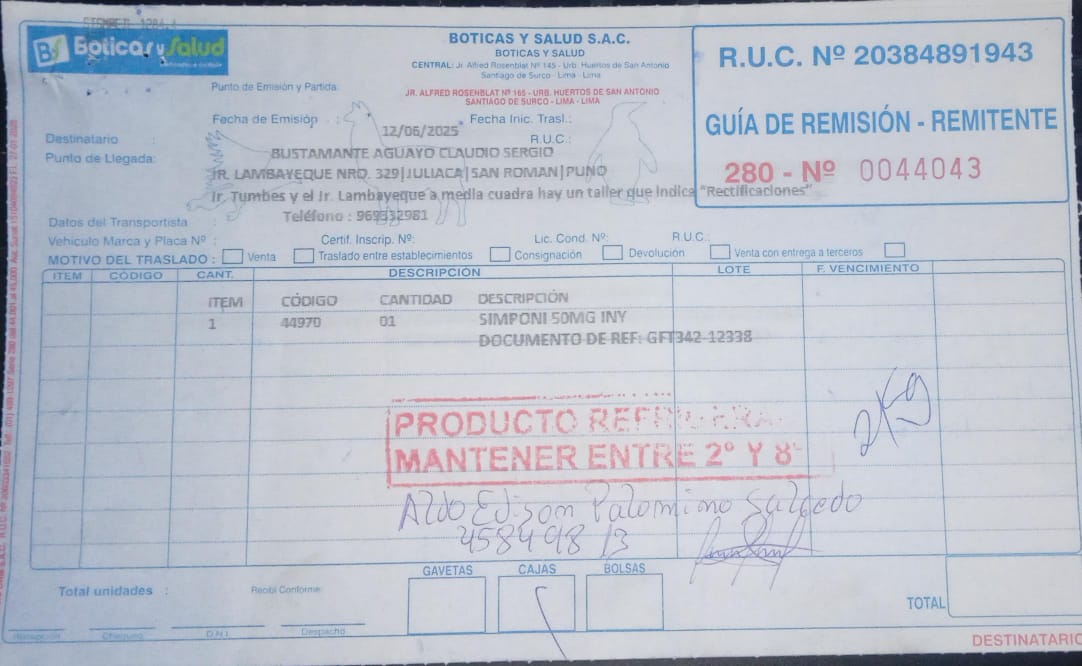 Boticas y Salud
BOTICAS Y SALUD S.A.C.
BOTICAS Y SALUD
CENTRAL: Jr. Alfred Rosenblat Nº 145 - Urb. Huertos de San Antonio
Santiago de Surco - Lima - Lima
Punto de Emisión y Partida:
JR. ALFRED ROSENBLAT Nº 165 - URB. HUERTOS DE SAN ANTONIO
SANTIAGO DE SURCO - LIMA - LIMA
R.U.C. Nº 20384891943
GUÍA DE REMISIÓN - REMITENTE
280 - Nº 0044043
Fecha de Emisión : 12/06/2025 Fecha Inic. Trasl.:
Destinatario : R.U.C.:
BUSTAMANTE AGUAYO CLAUDIO SERGIO
Punto de Llegada: JR. LAMBAYEQUE NRO. 329|JULIACA|SAN ROMAN|PUNO
Jr. Tumbes y el Jr. Lambayeque a media cuadra hay un taller que indica "Rectificaciones"
Datos del Transportista : Teléfono : 969332981
Vehículo Marca y Placa Nº : Certif. Inscrip. Nº: Lic. Cond. Nº: R.U.C.:
MOTIVO DEL TRASLADO : Venta Traslado entre establecimientos Consignación Devolución Venta con entrega a terceros
ITEM CÓDIGO CANT. DESCRIPCIÓN LOTE F. VENCIMIENTO
ITEM CÓDIGO CANTIDAD DESCRIPCIÓN
1 44970 01 SIMPONI 50MG INY
DOCUMENTO DE REF: GFT342-12338
PRODUCTO
MANTENER ENTRE 2º Y 8º
Aldo Edison Palomino Salcedo
45849813
GAVETAS CAJAS BOLSAS
Total unidades : Recibí Conforme:
TOTAL
Recepción Chequeo D.N.I. Despacho
DESTINATARIO